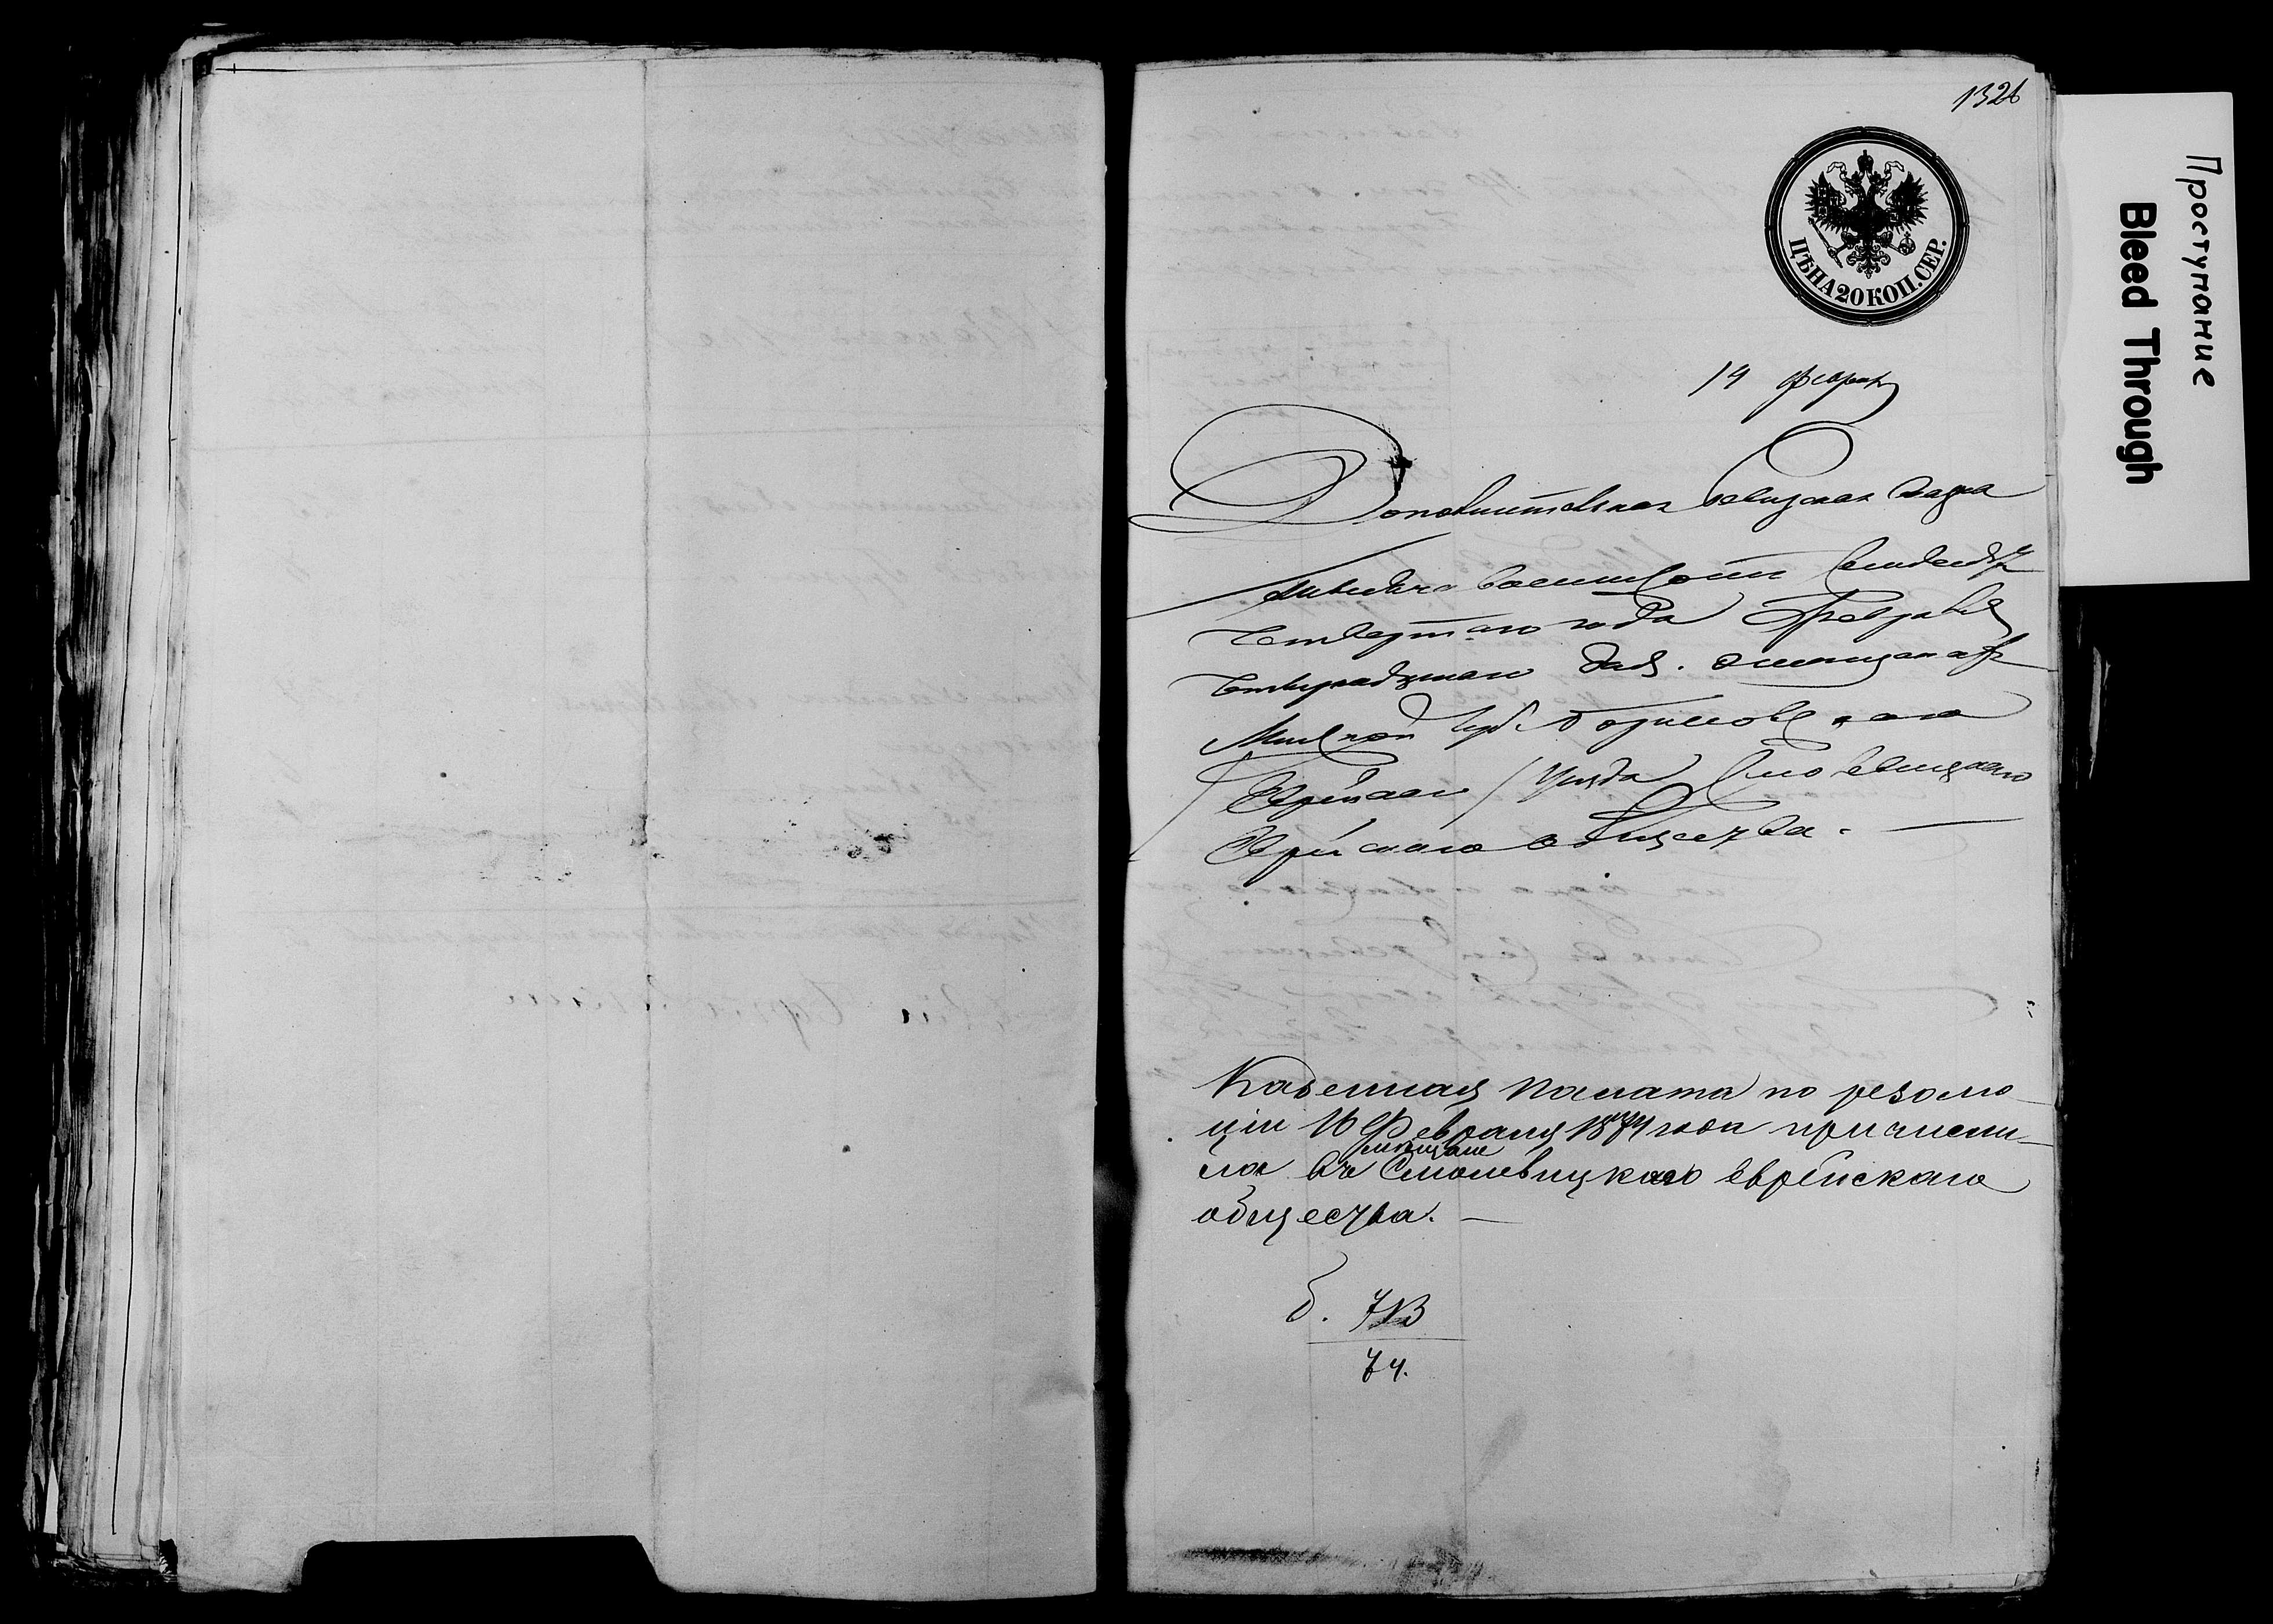 1326
ЦѢНА 20 КОП. СЕР.
Проступание
Bleed Through
14 февраля
Дополнительная ревизская сказка
тысяча восемьсотъ семьдесятъ
четвертаго года Февраля
четырнадцатаго дня. о мѣщанахъ
Минской губ. Борисовскаго
Еврейскаго / уѣзда Смолевицкаго
Еврейскаго общества. —
Казенная Палата по резолю-
ціи 16 Февраля 1874 года причисли-
мѣщане
ла въ Смолевицкаго еврейскаго
общества. —
б. 713
74.